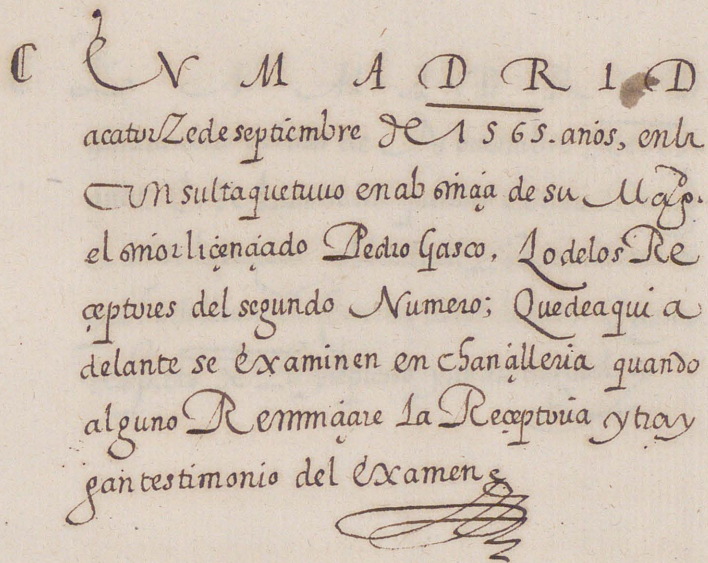 ¶ EN MADRID
a catorze de septiembre de 1565. años, en la
consulta que tuuo en absençia de su Magd.
el señor liçençiado Pedro Gasco, Lo de los Re
çeptores del segundo Numero; Que de aqui a
delante se examinen en chançilleria quando
alguno Renunçiare la Reçeptoria y tray
gan testimonio del examen